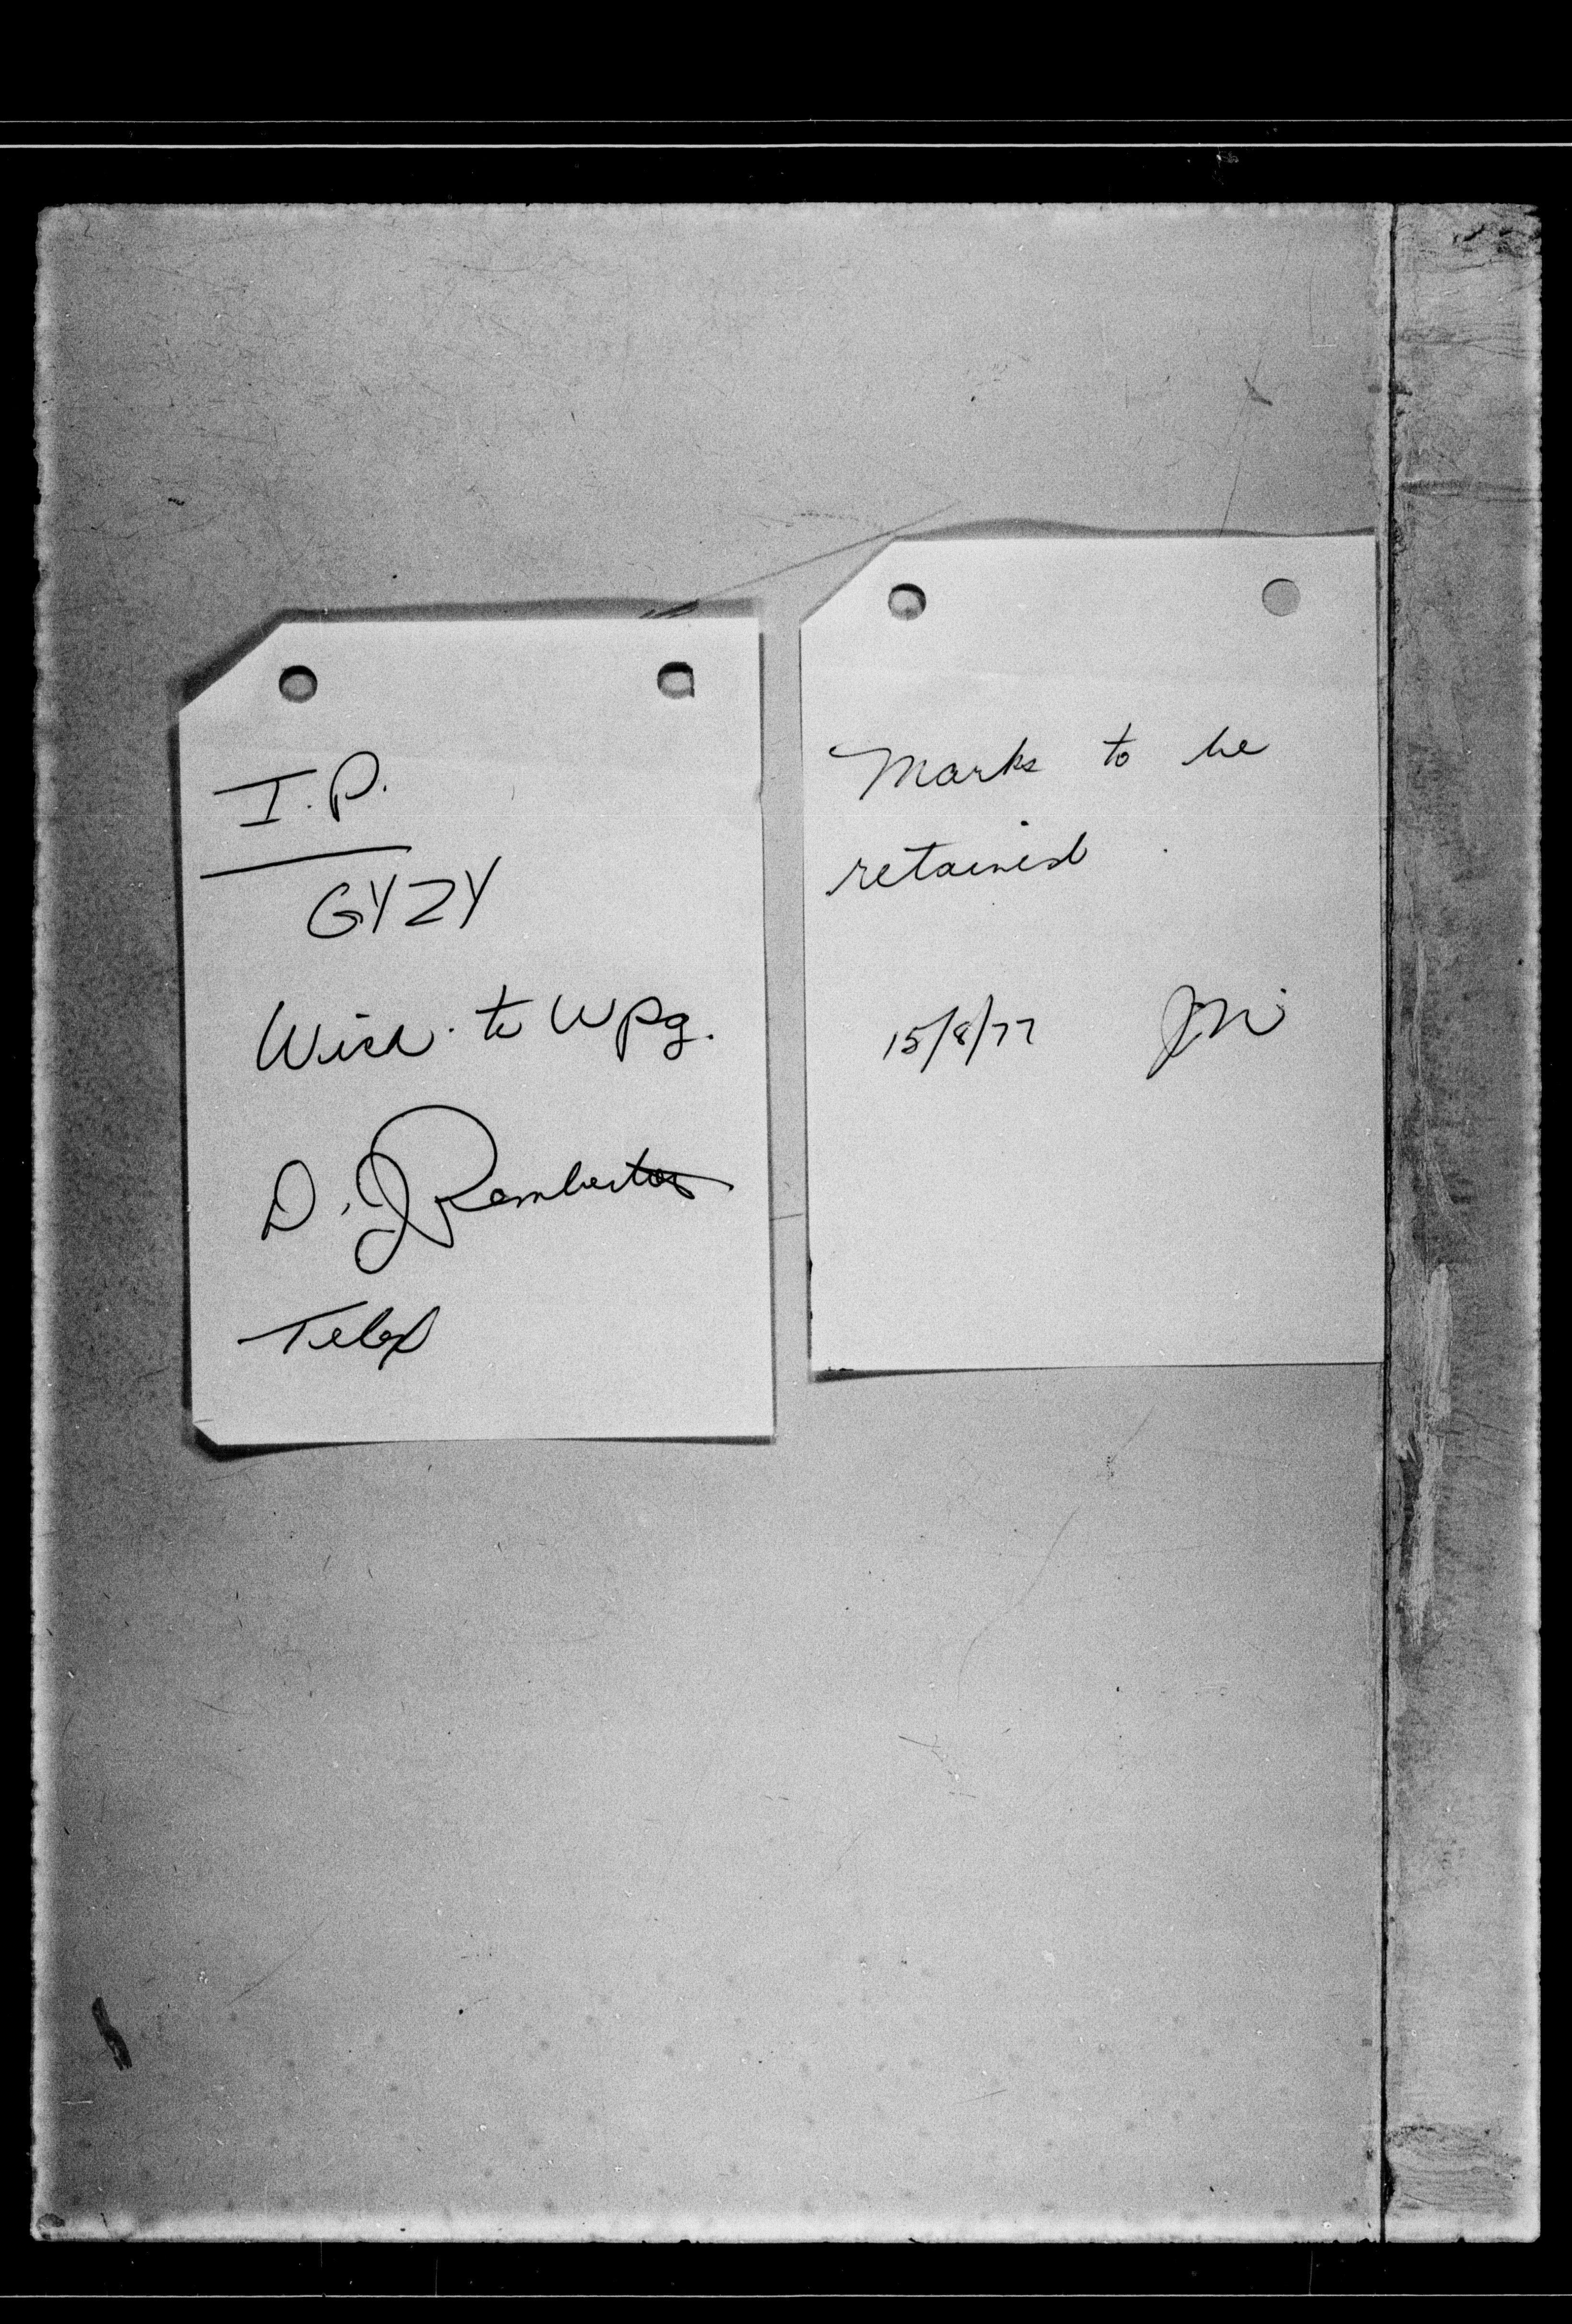 I.P.
GYZY
Wire to Wpg.
D. J Pemberton
Telex
Marks to be
retained
15/8/77